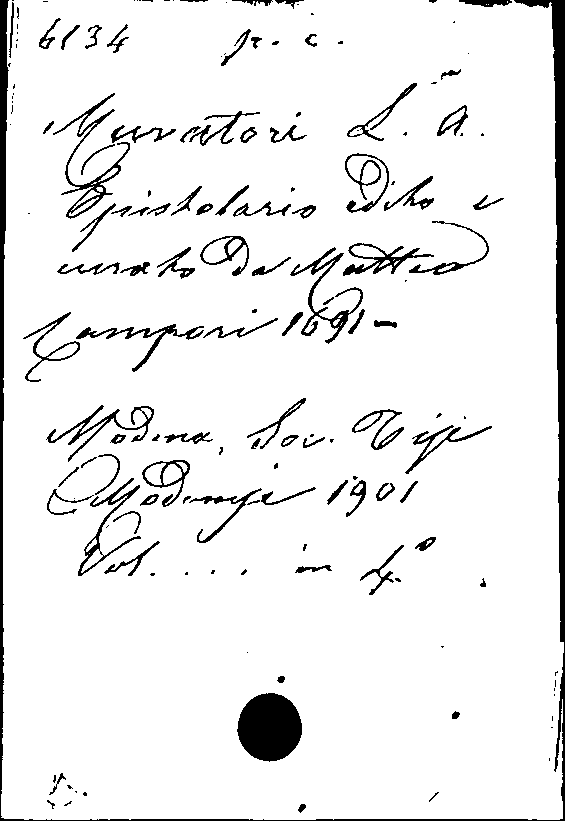 6134 p. c.
Muratori L. A.
Epistolario edito e
curato da Matteo
Campori 1691-
Modena, Soc. Tip.
Modenese 1901
Vol. .... in 4°